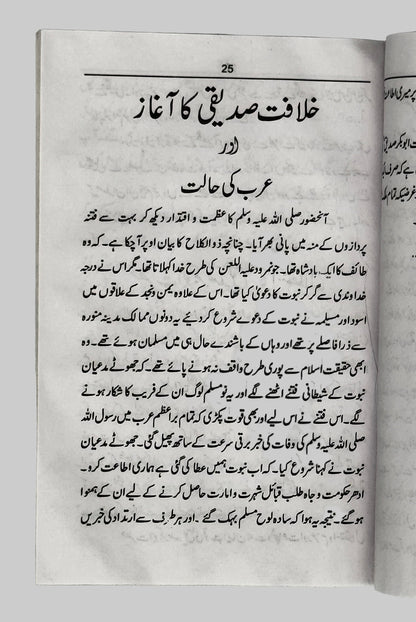 25
خلافت صدیقی کا آغاز
اور
عرب کی حالت
آنحضور صلی اللہ علیہ وسلم کا عظمت و اقتدار دیکھ کر بہت سے فتنہ
پردازوں کے منہ میں پانی بھر آیا۔ چنانچہ ذوالکلاح کا بیان اوپر آ چکا ہے۔ کہ وہ
طائف کا ایک بادشاہ تھا۔ جو نمرود علیہ اللعن کی طرح خدا کہلاتا تھا۔ مگر اس نے درجہ
خداوندی سے گر کر نبوت کا دعویٰ کیا تھا۔ اس کے علاوہ یمن ونجد کے علاقوں میں
اسود اور مسیلمہ نے نبوت کے دعوے شروع کر دیئے یہ دونوں ممالک مدینہ منورہ
سے ذرا فاصلے پر تھے اور وہاں کے باشندے حال ہی میں مسلمان ہوئے تھے۔ وہ
ابھی حقیقت اسلام سے پوری طرح واقف نہ ہونے پائے تھے۔ کہ جھوٹے مدعیان
نبوت کے شیطانی فتنے اٹھنے لگے اور یہ نو مسلم لوگ ان کے فریب کا شکار ہونے
لگے۔ اس فتنے نے اس لیے اور بھی قوت پکڑی کہ تمام براعظم عرب میں رسول اللہ
صلی اللہ علیہ وسلم کی وفات کی خبر برقی سرعت کے ساتھ پھیل گئی۔ جھوٹے مدعیان
نبوت نے کہنا شروع کیا۔ کہ اب نبوت ہمیں عطا کی گئی ہے ہماری اطاعت کرو۔
ادھر حکومت و جاہ طلب قبائل شہرت و امارت حاصل کرنے کے لیے ان کے ہمنوا
ہو گئے۔ نتیجہ یہ ہوا کہ سادہ لوح مسلم بہک گئے۔ اور ہر طرف سے ارتداد کی خبریں